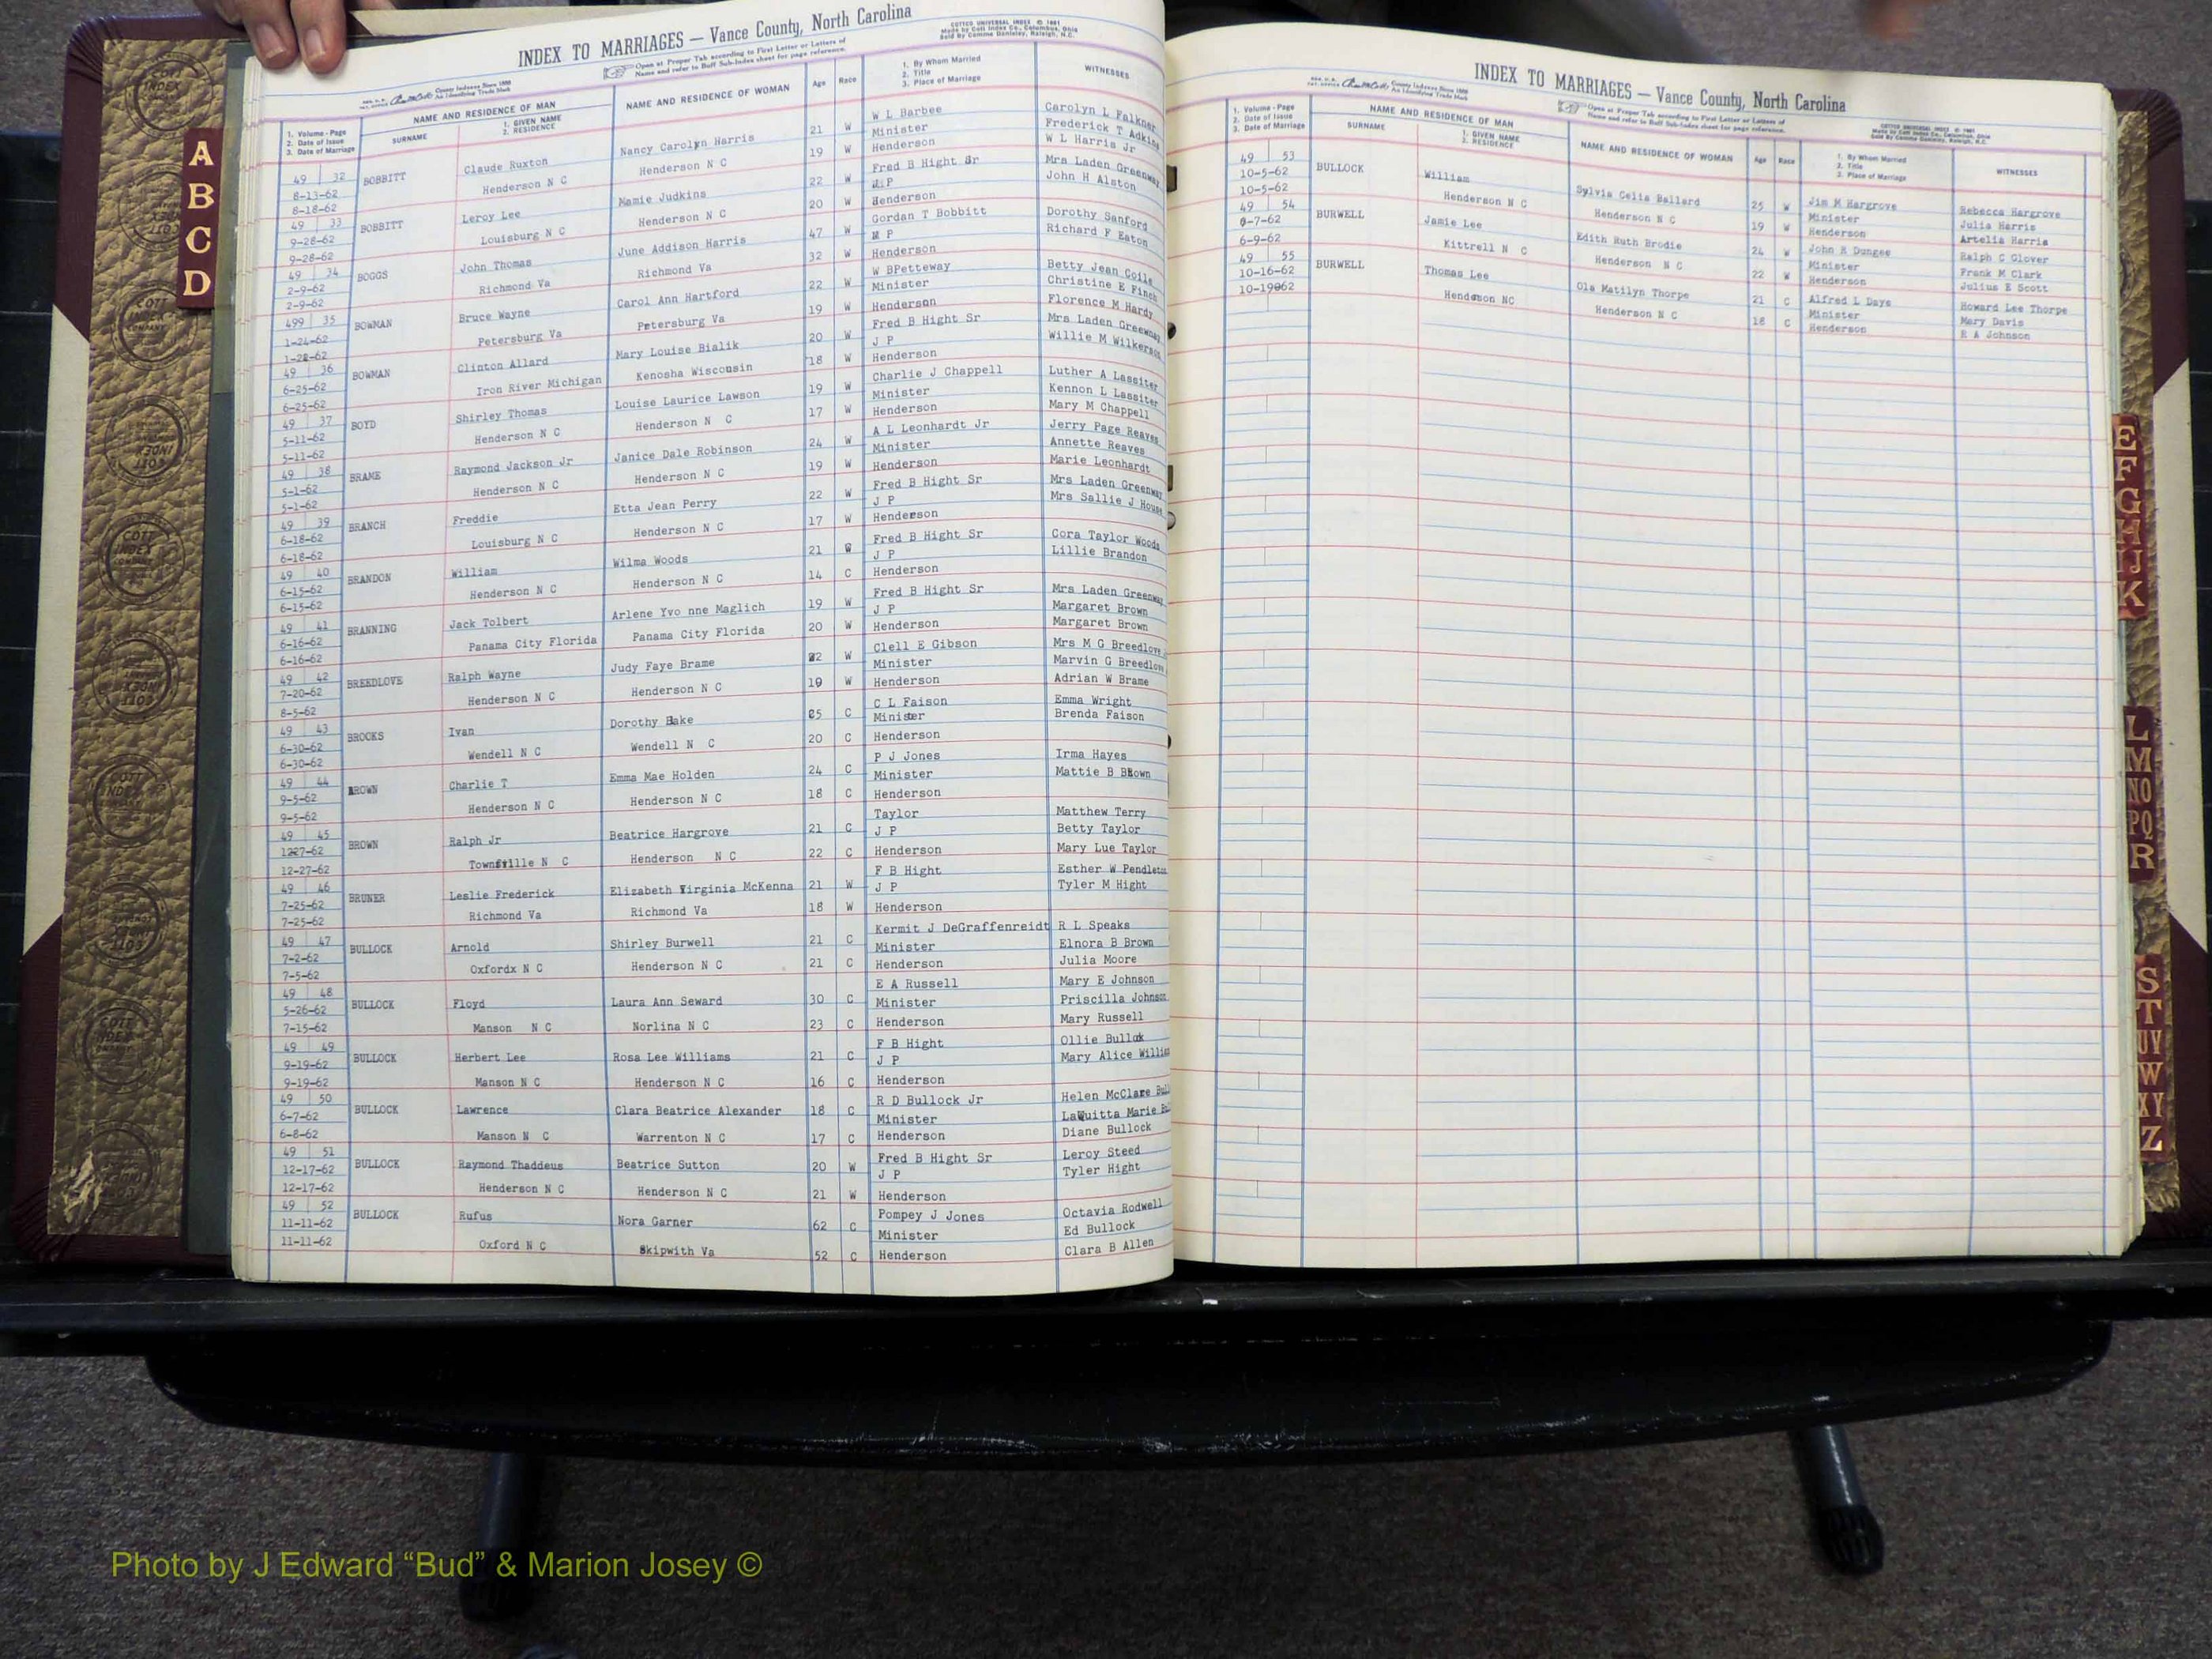 INDEX TO MARRIAGES — Vance County, North Carolina
COTTCO UNIVERSAL INDEX © 1961
Made by Cott Index Co., Columbus, Ohio
Sold By Comma Danieley, Raleigh, N.C.
County Indexes Since 1888
An Identifying Trade Mark
Open at Proper Tab according to First Letter or Letters of
Name and refer to Buff Sub-Index sheet for page reference.
1. Volume - Page
2. Date of Issue
3. Date of Marriage
NAME AND RESIDENCE OF MAN
SURNAME
1. GIVEN NAME
2. RESIDENCE
NAME AND RESIDENCE OF WOMAN
Age Race
1. By Whom Married
2. Title
3. Place of Marriage
WITNESSES
49 32 BOBBITT Claude Ruxton Nancy Carolyn Harris 21 W W L Barbee Carolyn L Falkner
8-13-62 Henderson N C Henderson N C 19 W Minister Frederick T Adkins
8-18-62 Henderson W L Harris Jr
49 33 BOBBITT Leroy Lee Mamie Judkins 22 W Fred B Hight Sr Mrs Laden Greenway
9-28-62 Louisburg N C Henderson N C 20 W P John H Alston
9-28-62 Henderson
49 34 BOGGS John Thomas June Addison Harris 47 W Gordan T Bobbitt Dorothy Sanford
2-9-62 Richmond Va Richmond Va 32 W M P Richard F Eaton
2-9-62 Henderson
499 35 BOWMAN Bruce Wayne Carol Ann Hartford 22 W W BPetteway Betty Jean Coile
1-24-62 Petersburg Va Petersburg Va 19 W Minister Christine E Finch
1-28-62 Henderson Florence M Hardy
49 36 BOWMAN Clinton Allard Mary Louise Bialik 20 W Fred B Hight Sr Mrs Laden Greenway
6-25-62 Iron River Michigan Kenosha Wisconsin 18 W J P Willie M Wilkerson
6-25-62 Henderson
49 37 BOYD Shirley Thomas Louise Laurice Lawson 19 W Charlie J Chappell Luther A Lassiter
5-11-62 Henderson N C Henderson N C 17 W Minister Kennon L Lassiter
5-11-62 Henderson Mary M Chappell
49 38 BRAME Raymond Jackson Jr Janice Dale Robinson 24 W A L Leonhardt Jr Jerry Page Reaves
5-1-62 Henderson N C Henderson N C 19 W Minister Annette Reaves
5-1-62 Henderson Marie Leonhardt
49 39 BRANCH Freddie Etta Jean Perry 22 W Fred B Hight Sr Mrs Laden Greenway
6-18-62 Louisburg N C Henderson N C 17 W J P Mrs Sallie J House
6-18-62 Henderson
49 40 BRANDON William Wilma Woods 21 Fred B Hight Sr Cora Taylor Woods
6-15-62 Henderson N C Henderson N C 14 C J P Lillie Brandon
6-15-62 Henderson
49 41 BRANNING Jack Tolbert Arlene Yvo nne Maglich 19 W Fred B Hight Sr Mrs Laden Greenway
6-16-62 Panama City Florida Panama City Florida 20 W J P Margaret Brown
6-16-62 Henderson Margaret Brown
49 42 BREEDLOVE Ralph Wayne Judy Faye Brame 22 W Clell E Gibson Mrs M G Breedlove
7-20-62 Henderson N C Henderson N C 19 W Minister Marvin G Breedlove
8-5-62 Henderson Adrian W Brame
49 43 BROOKS Ivan Dorothy Bake 25 C C L Faison Emma Wright
6-30-62 Wendell N C Wendell N C 20 C Minister Brenda Faison
6-30-62 Henderson
49 44 BROWN Charlie T Emma Mae Holden 24 C P J Jones Irma Hayes
9-5-62 Henderson N C Henderson N C 18 C Minister Mattie B Brown
9-5-62 Henderson
49 45 BROWN Ralph Jr Beatrice Hargrove 21 C Taylor Matthew Terry
1227-62 Townsville N C Henderson N C 22 C J P Betty Taylor
12-27-62 Henderson Mary Lue Taylor
49 46 BRUNER Leslie Frederick Elizabeth Virginia McKenna 21 W F B Hight Esther W Pendleton
7-25-62 Richmond Va Richmond Va 18 W J P Tyler M Hight
7-25-62 Henderson
49 47 BULLOCK Arnold Shirley Burwell 21 C Kermit J DeGraffenreidt R L Speaks
7-2-62 Oxfordx N C Henderson N C 21 C Minister Elnora B Brown
7-5-62 Henderson Julia Moore
49 48 BULLOCK Floyd Laura Ann Seward 30 C E A Russell Mary E Johnson
5-26-62 Manson N C Norlina N C 23 C Minister Priscilla Johnson
7-15-62 Henderson Mary Russell
49 49 BULLOCK Herbert Lee Rosa Lee Williams 21 C F B Hight Ollie Bullok
9-19-62 Manson N C Henderson N C 16 C J P Mary Alice
9-19-62 Henderson
49 50 BULLOCK Lawrence Clara Beatrice Alexander 18 C R D Bullock Jr Helen McClare
6-7-62 Manson N C Warrenton N C 17 C Minister LaQuitta Marie
6-8-62 Henderson Diane Bullock
49 51 BULLOCK Raymond Thaddeus Beatrice Sutton 20 W Fred B Hight Sr Leroy Steed
12-17-62 Henderson N C Henderson N C 21 W J P Tyler Hight
12-17-62 Henderson
49 52 BULLOCK Rufus Nora Garner 62 C Pompey J Jones Octavia Rodwell
11-11-62 Oxford N C Skipwith Va 52 C Minister Ed Bullock
11-11-62 Henderson Clara B Allen
INDEX TO MARRIAGES — Vance County, North Carolina
County Indexes Since 1888
An Identifying Trade Mark
Open at Proper Tab according to First Letter or Letters of
Name and refer to Buff Sub-Index sheet for page reference.
COTTCO UNIVERSAL INDEX © 1961
Made by Cott Index Co., Columbus, Ohio
Sold By Comma Danieley, Raleigh, N.C.
1. Volume - Page
2. Date of Issue
3. Date of Marriage
NAME AND RESIDENCE OF MAN
SURNAME
1. GIVEN NAME
2. RESIDENCE
NAME AND RESIDENCE OF WOMAN
Age Race
1. By Whom Married
2. Title
3. Place of Marriage
WITNESSES
49 53 BULLOCK William Sylvia Celia Ballard 25 W Jim M Hargrove Rebecca Hargrove
10-5-62 Henderson N C Henderson N C 19 W Minister Julia Harris
10-5-62 Henderson Artelia Harris
49 54 BURWELL Jamie Lee Edith Ruth Brodie 24 W John R Dungee Ralph C Glover
-7-62 Kittrell N C Henderson N C 22 W Minister Frank M Clark
6-9-62 Henderson Julius E Scott
49 55 BURWELL Thomas Lee Ola Matilyn Thorpe 21 C Alfred L Daye Howard Lee Thorpe
10-16-62 Henderson NC Henderson N C 18 C Minister Mary Davis
10-19062 Henderson R A Johnson
A
B
C
D
E
F
G
H
IJ
K
L
M
NO
PQ
R
S
T
UV
W
XY
Z
COTT
INDEX
COMPANY
Photo by J Edward “Bud” & Marion Josey ©